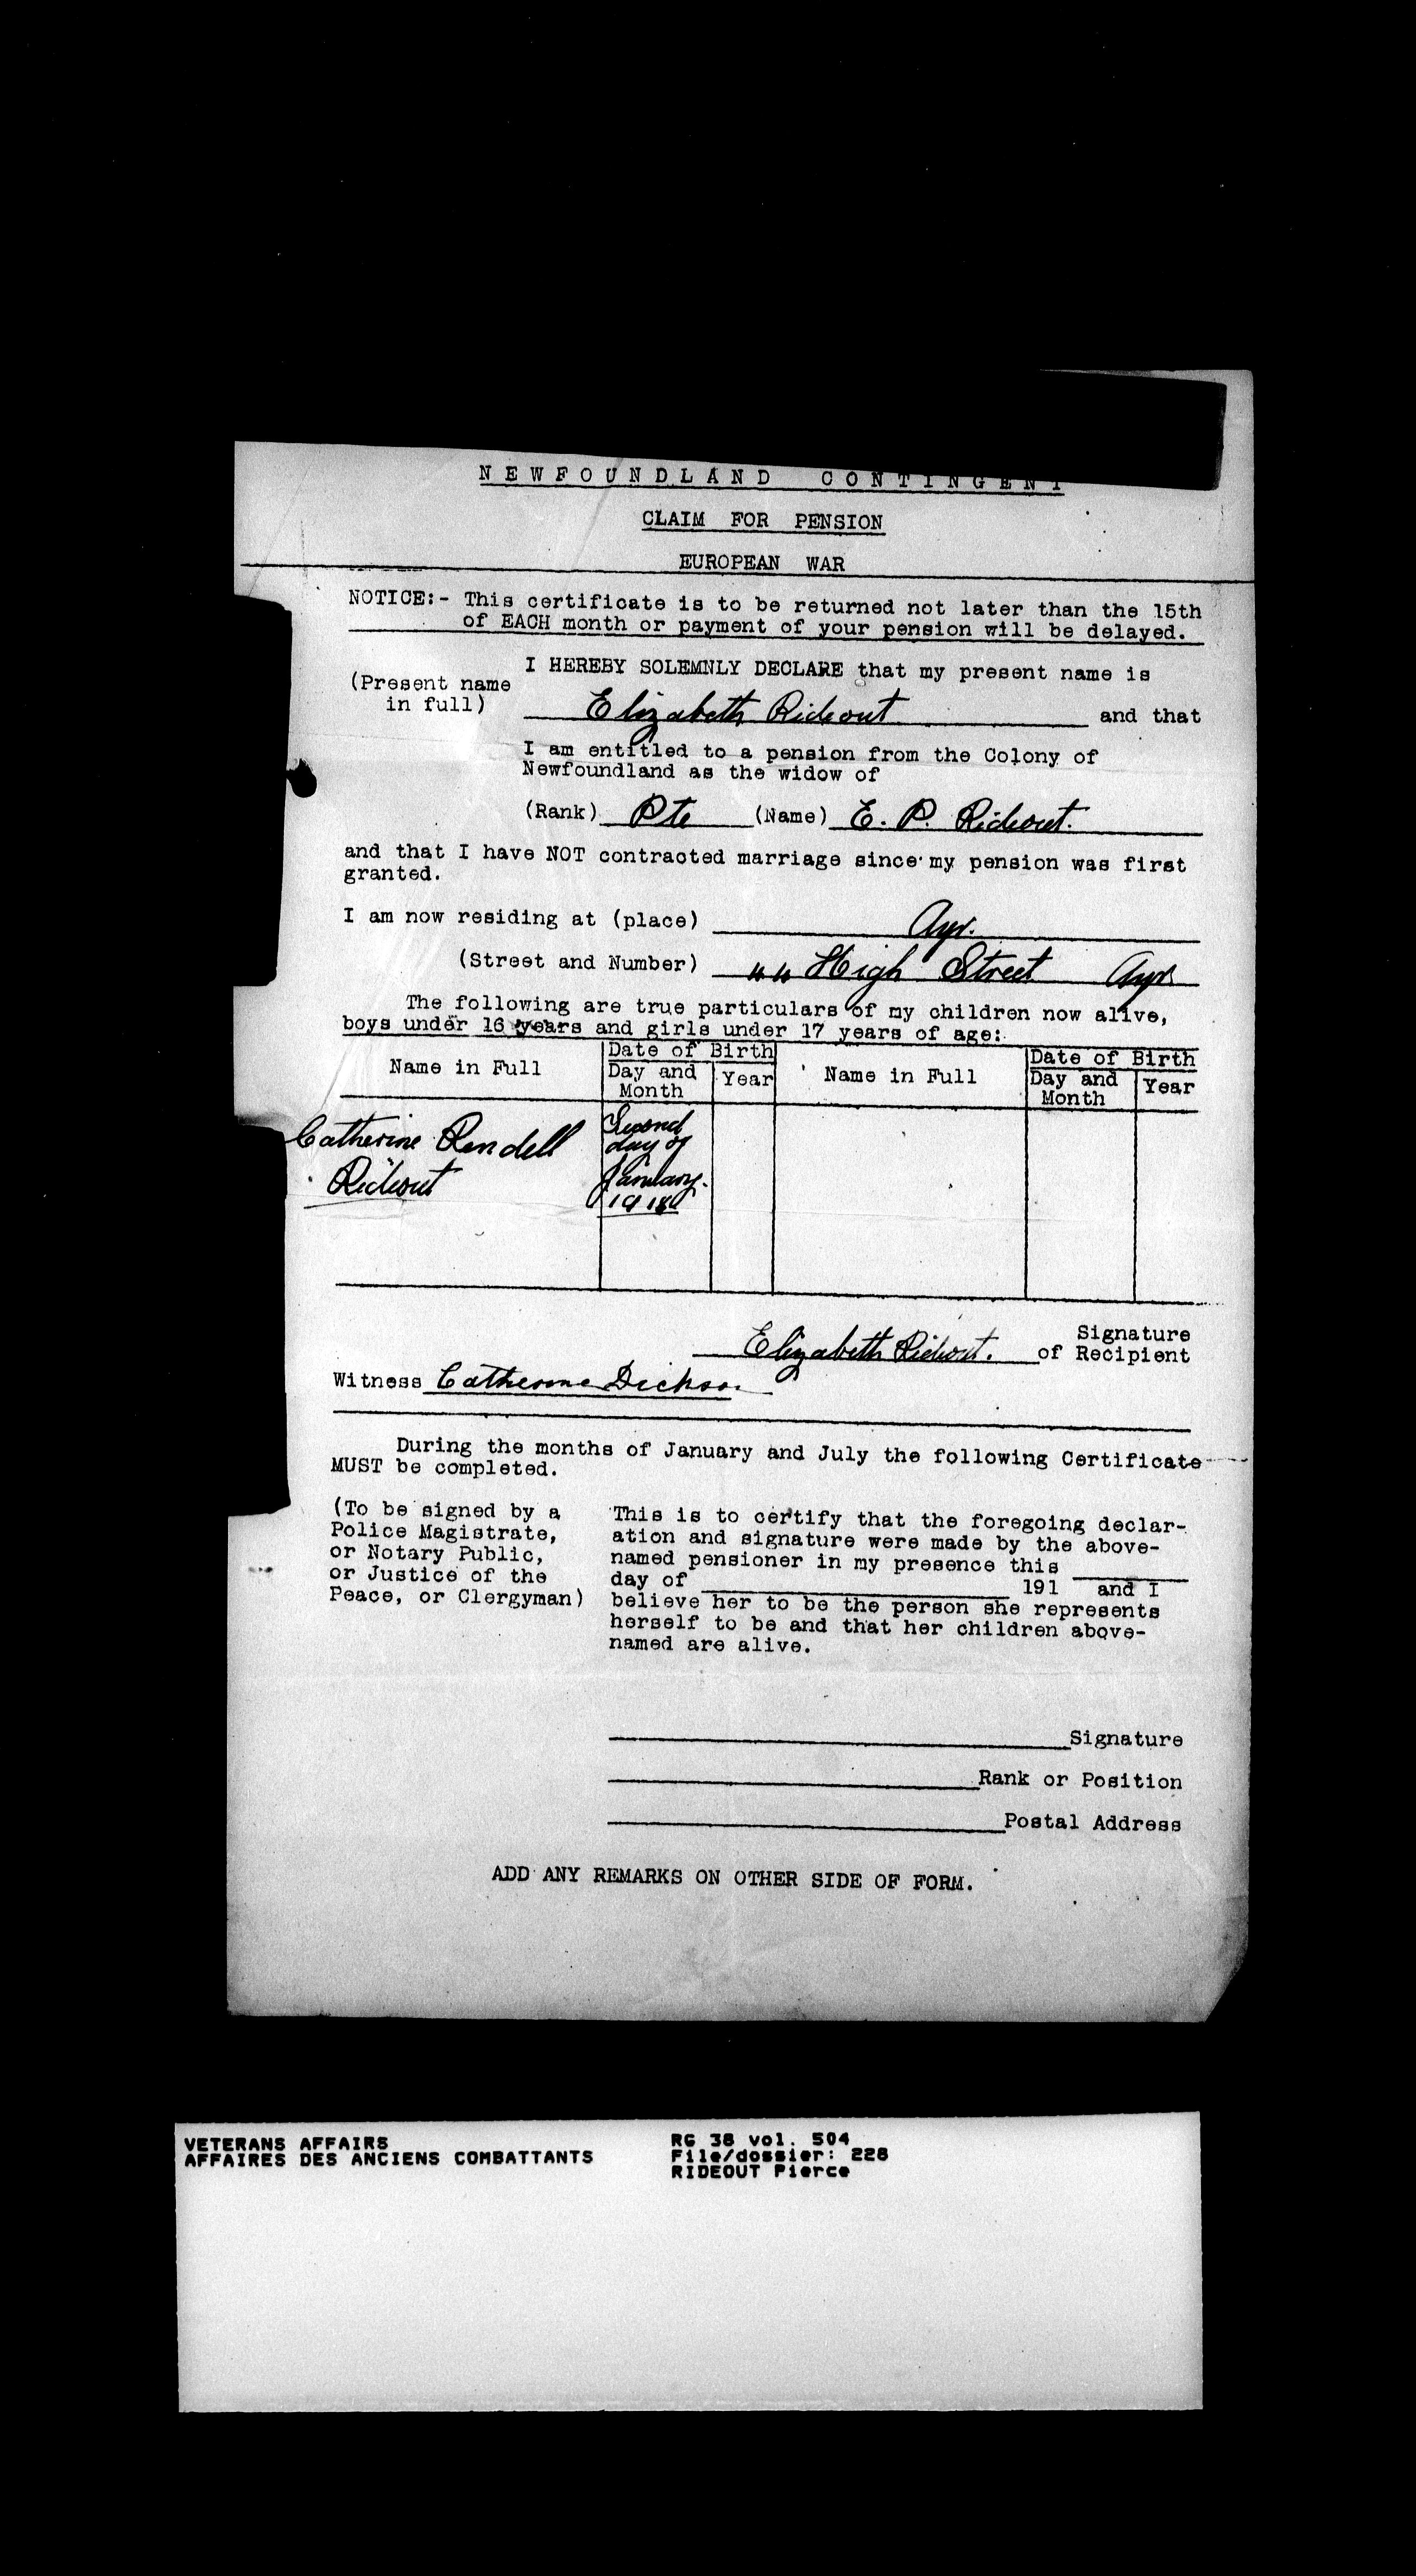 NEWFOUNDLAND CONTINGENT
CLAIM FOR PENSION
EUROPEAN WAR
NOTICE:- This certificate is to be returned not later than the 15th
of EACH month or payment of your pension will be delayed.
I HEREBY SOLEMNLY DECLARE that my present name is
(Present name
in full)
Elizabeth Rideout and that
I am entitled to a pension from the Colony of
Newfoundland as the widow of
(Rank) Pte (Name) E. P. Rideout.
and that I have NOT contracted marriage since my pension was first
granted.
I am now residing at (place) Ayr.
(Street and Number) 44 High Street Ayr
The following are true particulars of my children now alive,
boys under 16 years and girls under 17 years of age:
Name in Full Date of Birth Day and Month Year Name in Full Date of Birth Day and Month Year
Catherine Rendell
Rideout
Second
day of
January.
1918
Elizabeth Rideout. Signature
of Recipient
Witness Catherine Dickson
During the months of January and July the following Certificate
MUST be completed.
(To be signed by a
Police Magistrate,
or Notary Public,
or Justice of the
Peace, or Clergyman)
This is to certify that the foregoing declar-
ation and signature were made by the above-
named pensioner in my presence this
day of 191 and I
believe her to be the person she represents
herself to be and that her children above-
named are alive.
Signature
Rank or Position
Postal Address
ADD ANY REMARKS ON OTHER SIDE OF FORM.
VETERANS AFFAIRS
AFFAIRES DES ANCIENS COMBATTANTS
RG 38 vol. 504
File/dossier: 228
RIDEOUT Pierce